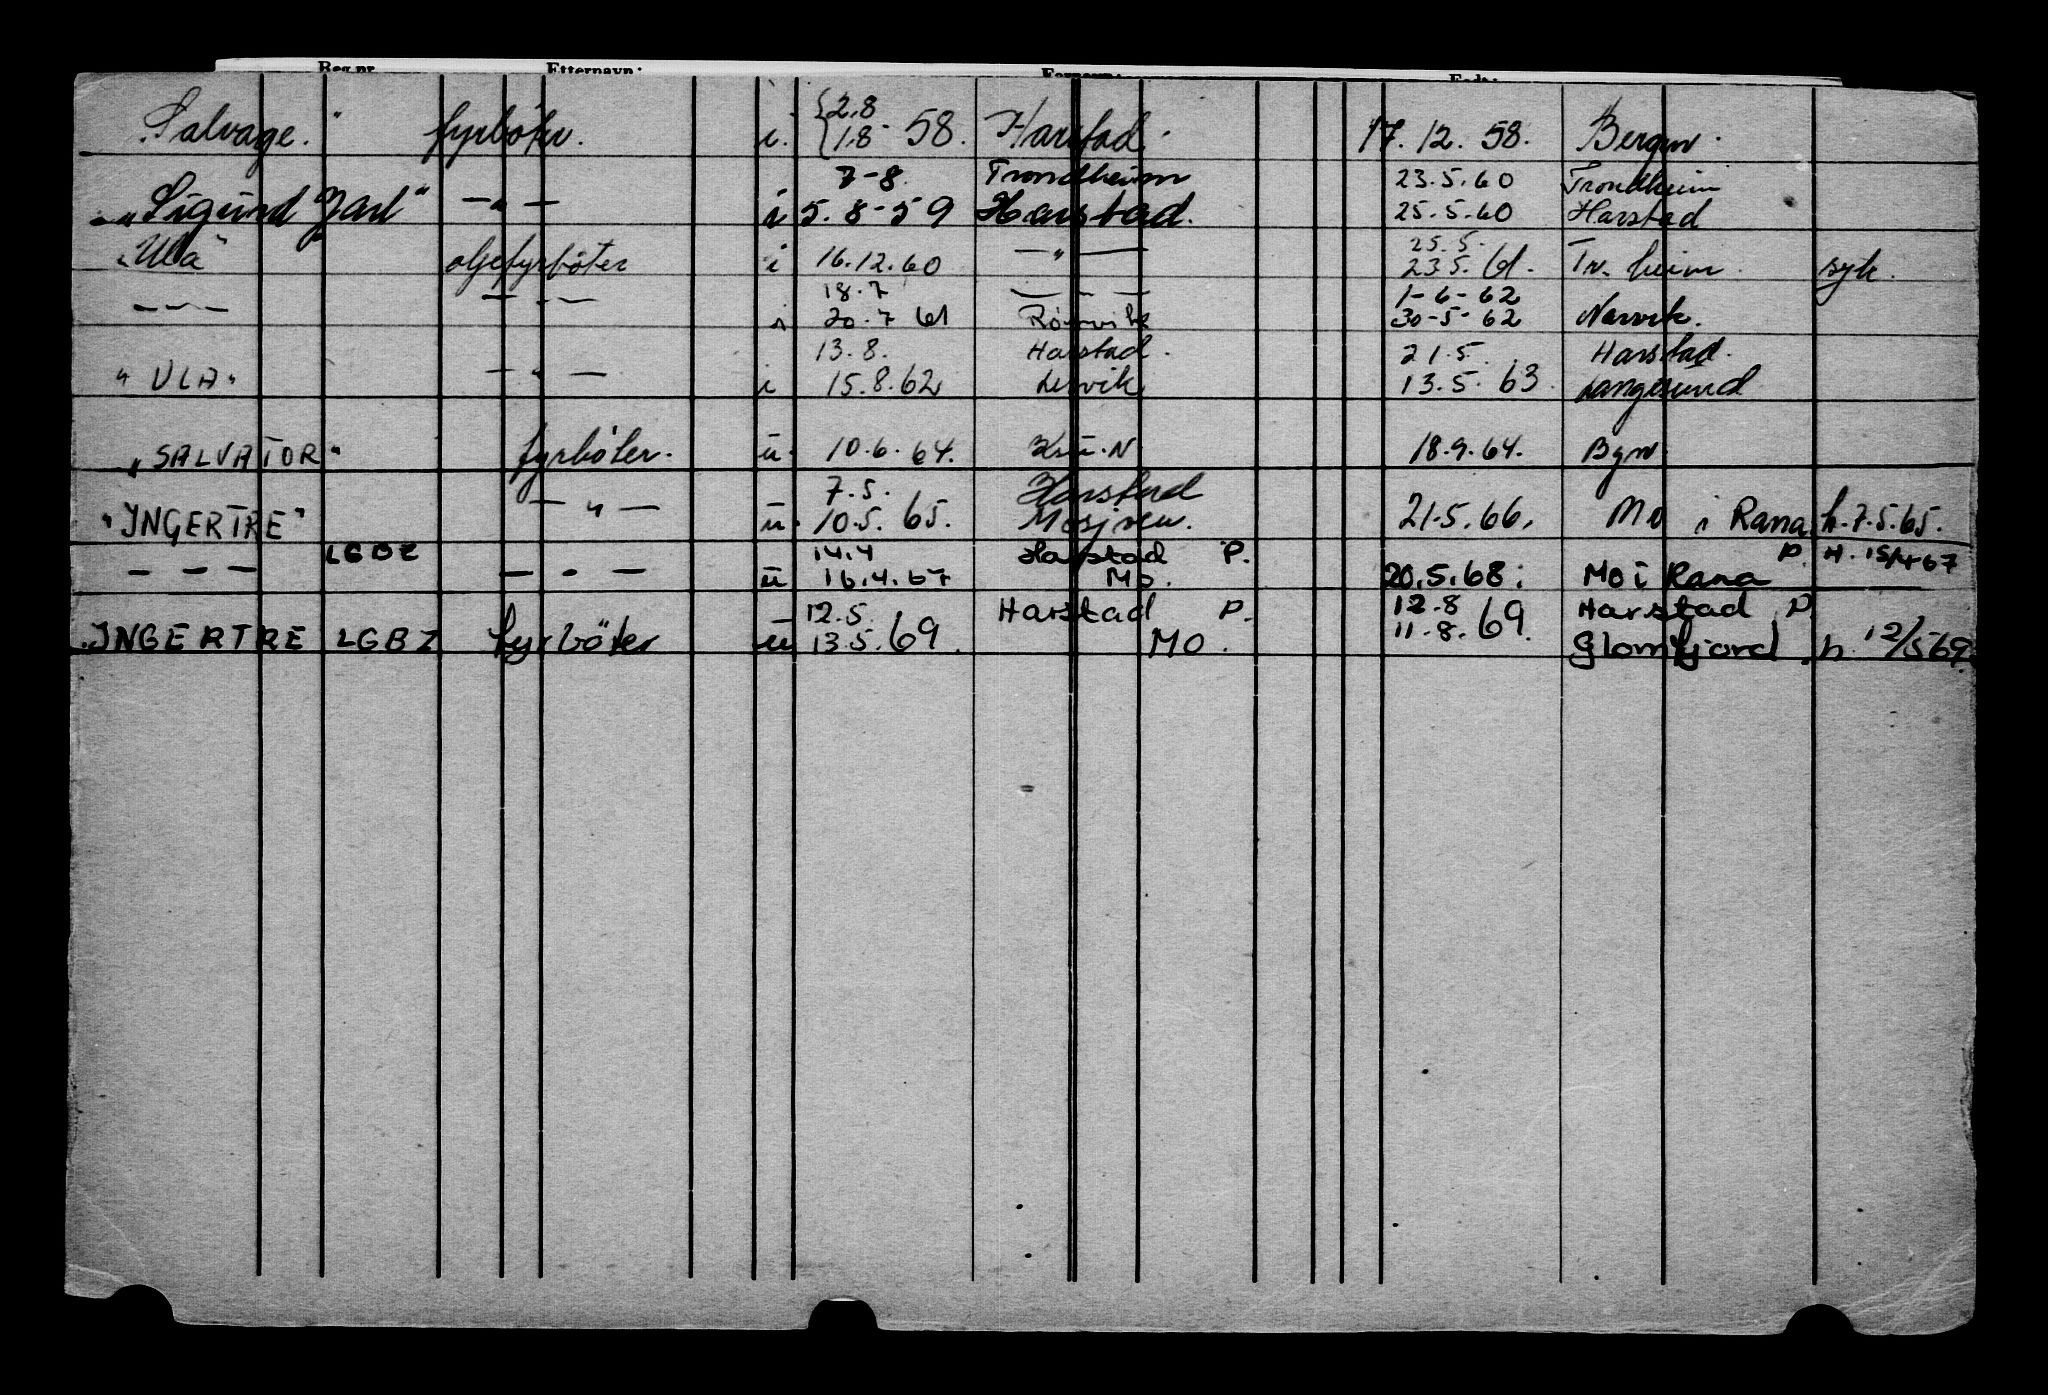 Reg.nr. Etternavn: Fornavn: Født:
Salvage." fyrböter. i. {2.8 Harstad. 17.12.58. Bergen.
{1.8 - 58.
7-8. Trondheim 23.5.60 Trondheim
"Sigurd Jarl" — " — i 5.8-59 Harstad. 25.5.60 Harstad
25.5.
"Ula" oljefyrböter i 16.12.60 — " — 23.5.61. Tr.heim. syk.
18.7 — " — 1-6-62
— " — — " — 20.7 61 Rörvik 30-5-62 Narvik.
13.8. Harstad. 21.5. Harstad.
"ULA" — " — i 15.8.62 13.5.63. Langesund
"SALVATOR" fyrböter. ü. 10.6.64. Kr.ü.N. 18.9.64. Bgn.
7.5. Harstad
"INGERTRE" — " — ü. 10.5.65. Mosjöen. 21.5.66. Mo i Rana h.7.5.65.
LGBZ 14.4 Harstad P. P. H. 15/4 67
— " — — " — ü 16.4.67 Mo. 20.5.68. Mo i Rana
12.5. Harstad P. 12.8 Harstad P.
INGERTRE LGBZ fyrböter ü 13.5.69. MO. 11.8.69. Glomfjord. h. 12/5 69.